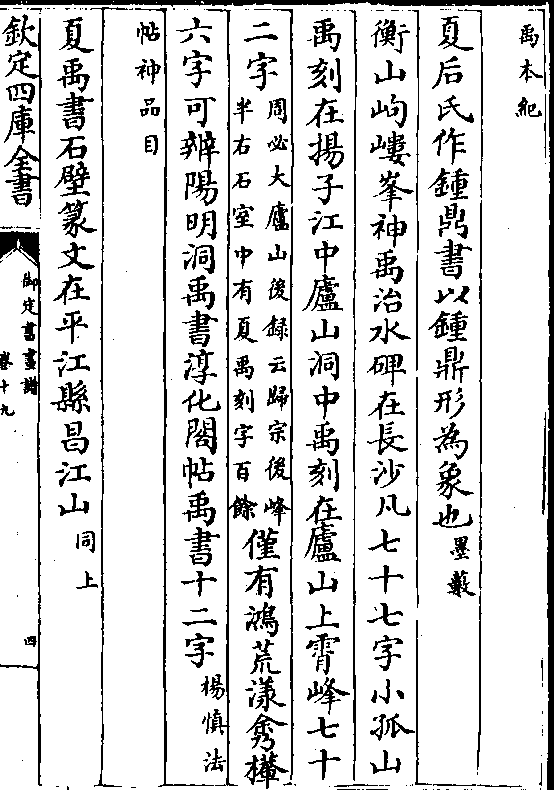 禹本紀
夏后氏作鍾鼎書以鍾鼎形為象也墨藪
衡山岣嶁峯神禹治水碑在長沙凡七十七字小孤山
禹刻在揚子江中廬山洞中禹刻在廬山上霄峰七十
二字周必大廬山後録云歸宗後峰半右石室中有夏禹刻字百餘僅有鴻荒漾余乃㰏
六字可辨陽明洞禹書淳化閣帖禹書十二字楊慎法
帖神品目
夏禹書石壁篆文在平江縣昌江山同上
欽定四庫全書
御定書畫譜
卷十九
四